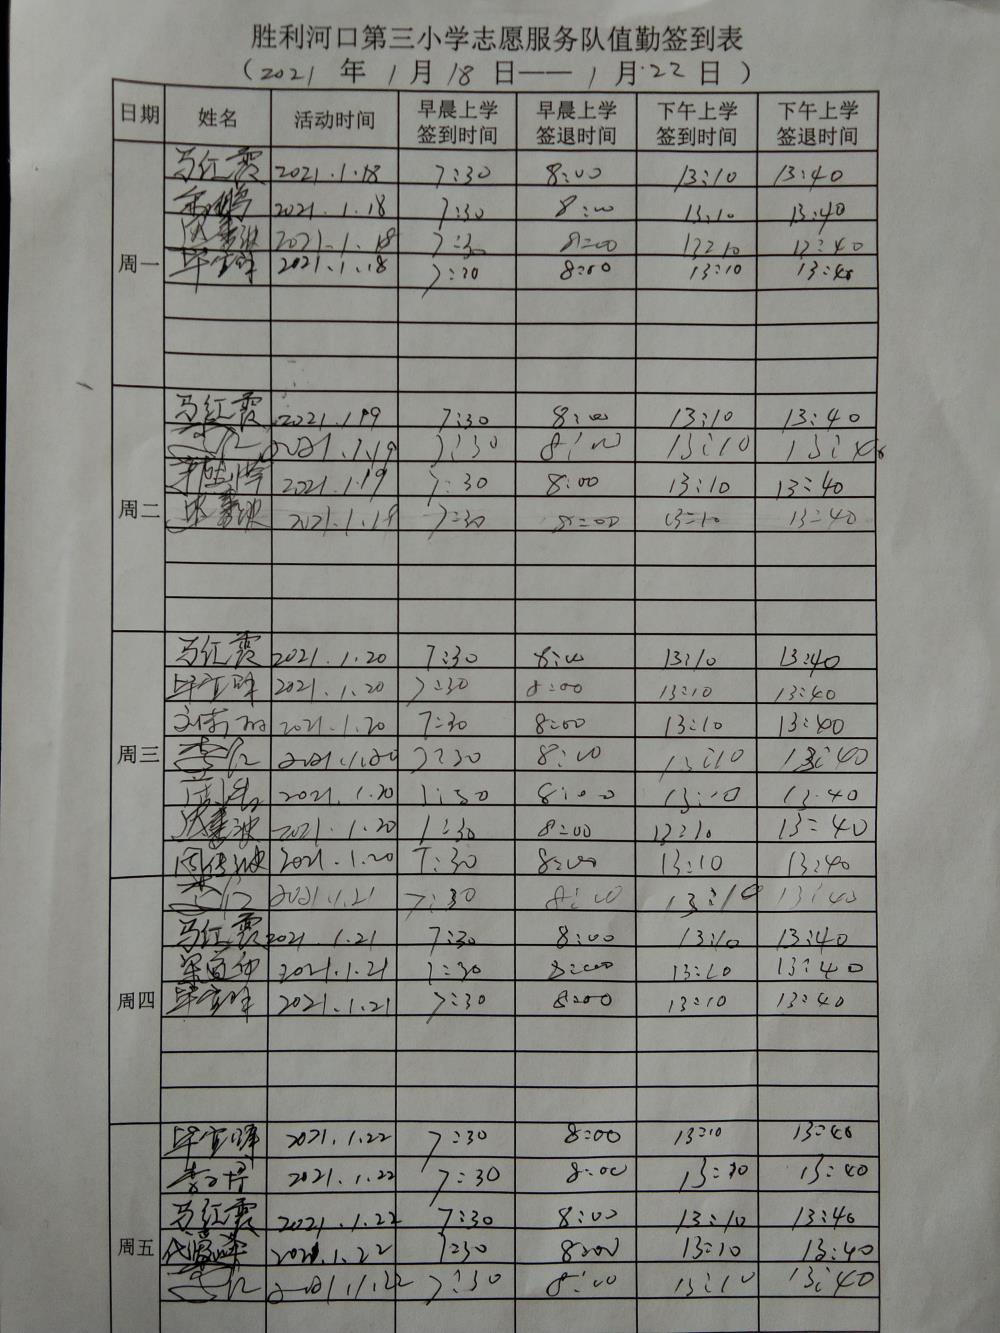 胜利河口第三小学志愿服务队值勤签到表
（2021 年 1 月 18 日—— 1 月 22 日）
日期 姓名 活动时间 早晨上学签到时间 早晨上学签退时间 下午上学签到时间 下午上学签退时间
周一
马红霞 2021.1.18 7:30 8:00 13:10 13:40
2021.1.18 7:30 8:00 13:10 13:40
2021.1.18 7:30 8:00 13:10 13:40
2021.1.18 7:30 8:00 13:10 13:40
周二
马红霞 2021.1.19 7:30 8:00 13:10 13:40
2021.1.19 7:30 8:00 13:10 13:40
2021.1.19 7:30 8:00 13:10 13:40
2021.1.19 7:30 8:00 13:10 13:40
周三
马红霞 2021.1.20 7:30 8:00 13:10 13:40
2021.1.20 7:30 8:00 13:10 13:40
2021.1.20 7:30 8:00 13:10 13:40
2021.1.20 7:30 8:00 13:10 13:40
2021.1.20 7:30 8:00 13:10 13:40
2021.1.20 7:30 8:00 13:10 13:40
2021.1.20 7:30 8:00 13:10 13:40
周四
2021.1.21 7:30 8:00 13:10 13:40
马红霞 2021.1.21 7:30 8:00 13:10 13:40
2021.1.21 7:30 8:00 13:10 13:40
2021.1.21 7:30 8:00 13:10 13:40
周五
2021.1.22 7:30 8:00 13:10 13:40
2021.1.22 7:30 8:00 13:10 13:40
马红霞 2021.1.22 7:30 8:00 13:10 13:40
2021.1.22 7:30 8:00 13:10 13:40
2021.1.22 7:30 8:00 13:10 13:40